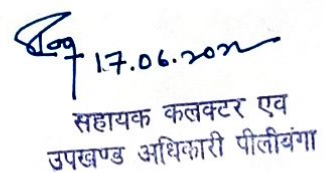 17.06.2022
सहायक कलक्टर एव
उपखण्ड अधिकारी पीलीबंगा